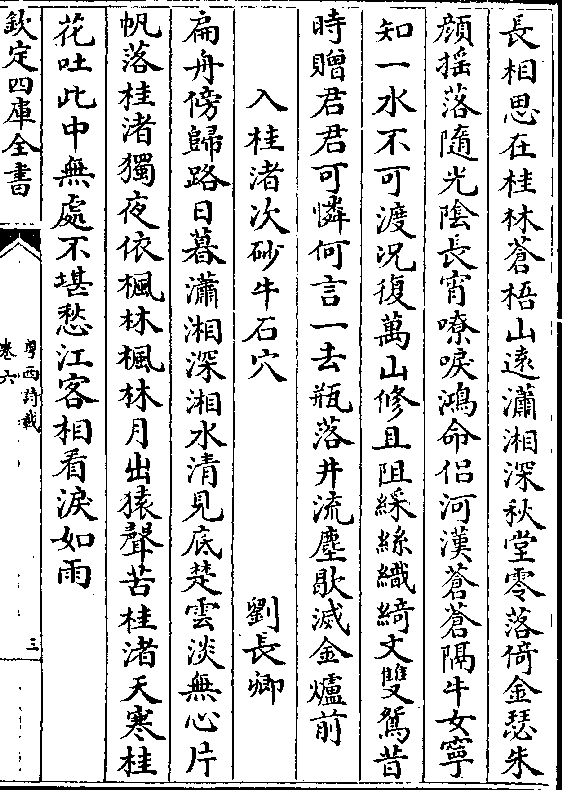 長相思在桂林蒼梧山遠瀟湘深秋堂零落倚金瑟朱
顔揺落隨光陰長宵嘹唳鴻命侣河漢蒼蒼隔牛女寧
知一水不可渡况復萬山修且阻綵絲織綺文雙鴛昔
時贈君君可憐何言一去瓶落井流塵歇滅金爐前
入桂渚次砂牛石穴　劉長卿
扁舟傍歸路日暮瀟湘深湘水清見底楚雲淡無心片
帆落桂渚獨夜依楓林楓林月出猿聲苦桂渚天寒桂
花吐此中無處不堪愁江客相看淚如雨
欽定四庫全書
粤西詩載
卷六
三